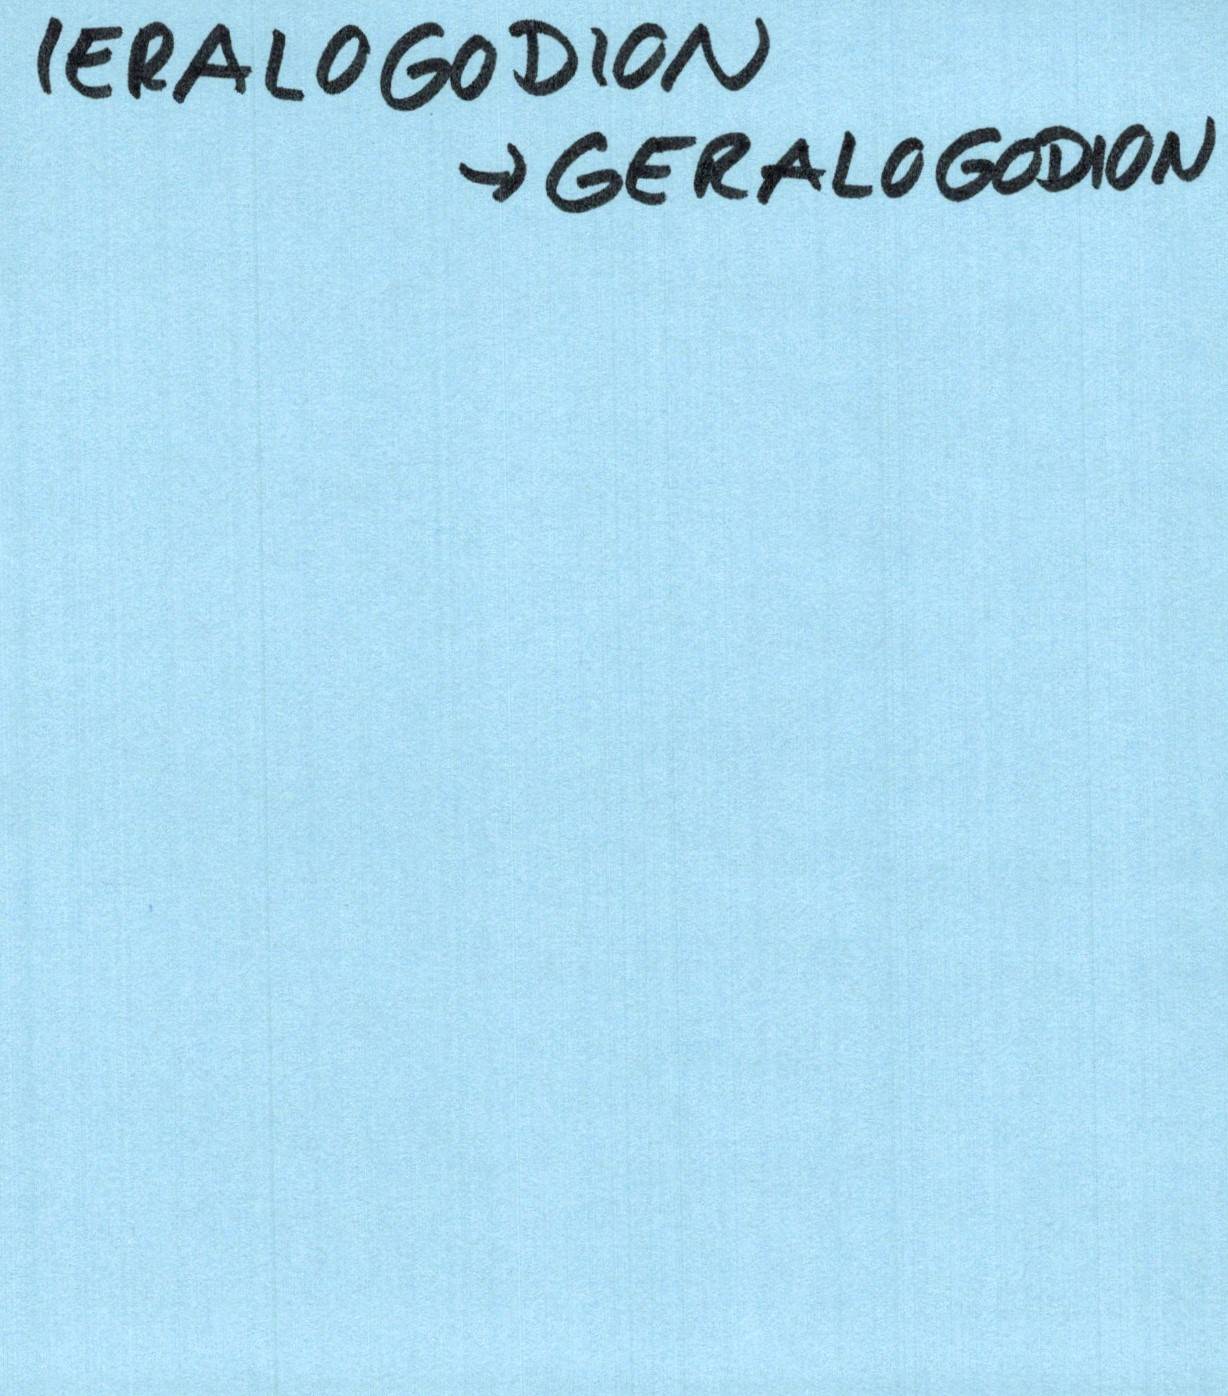 IERALOGODION
→ GERALOGODION